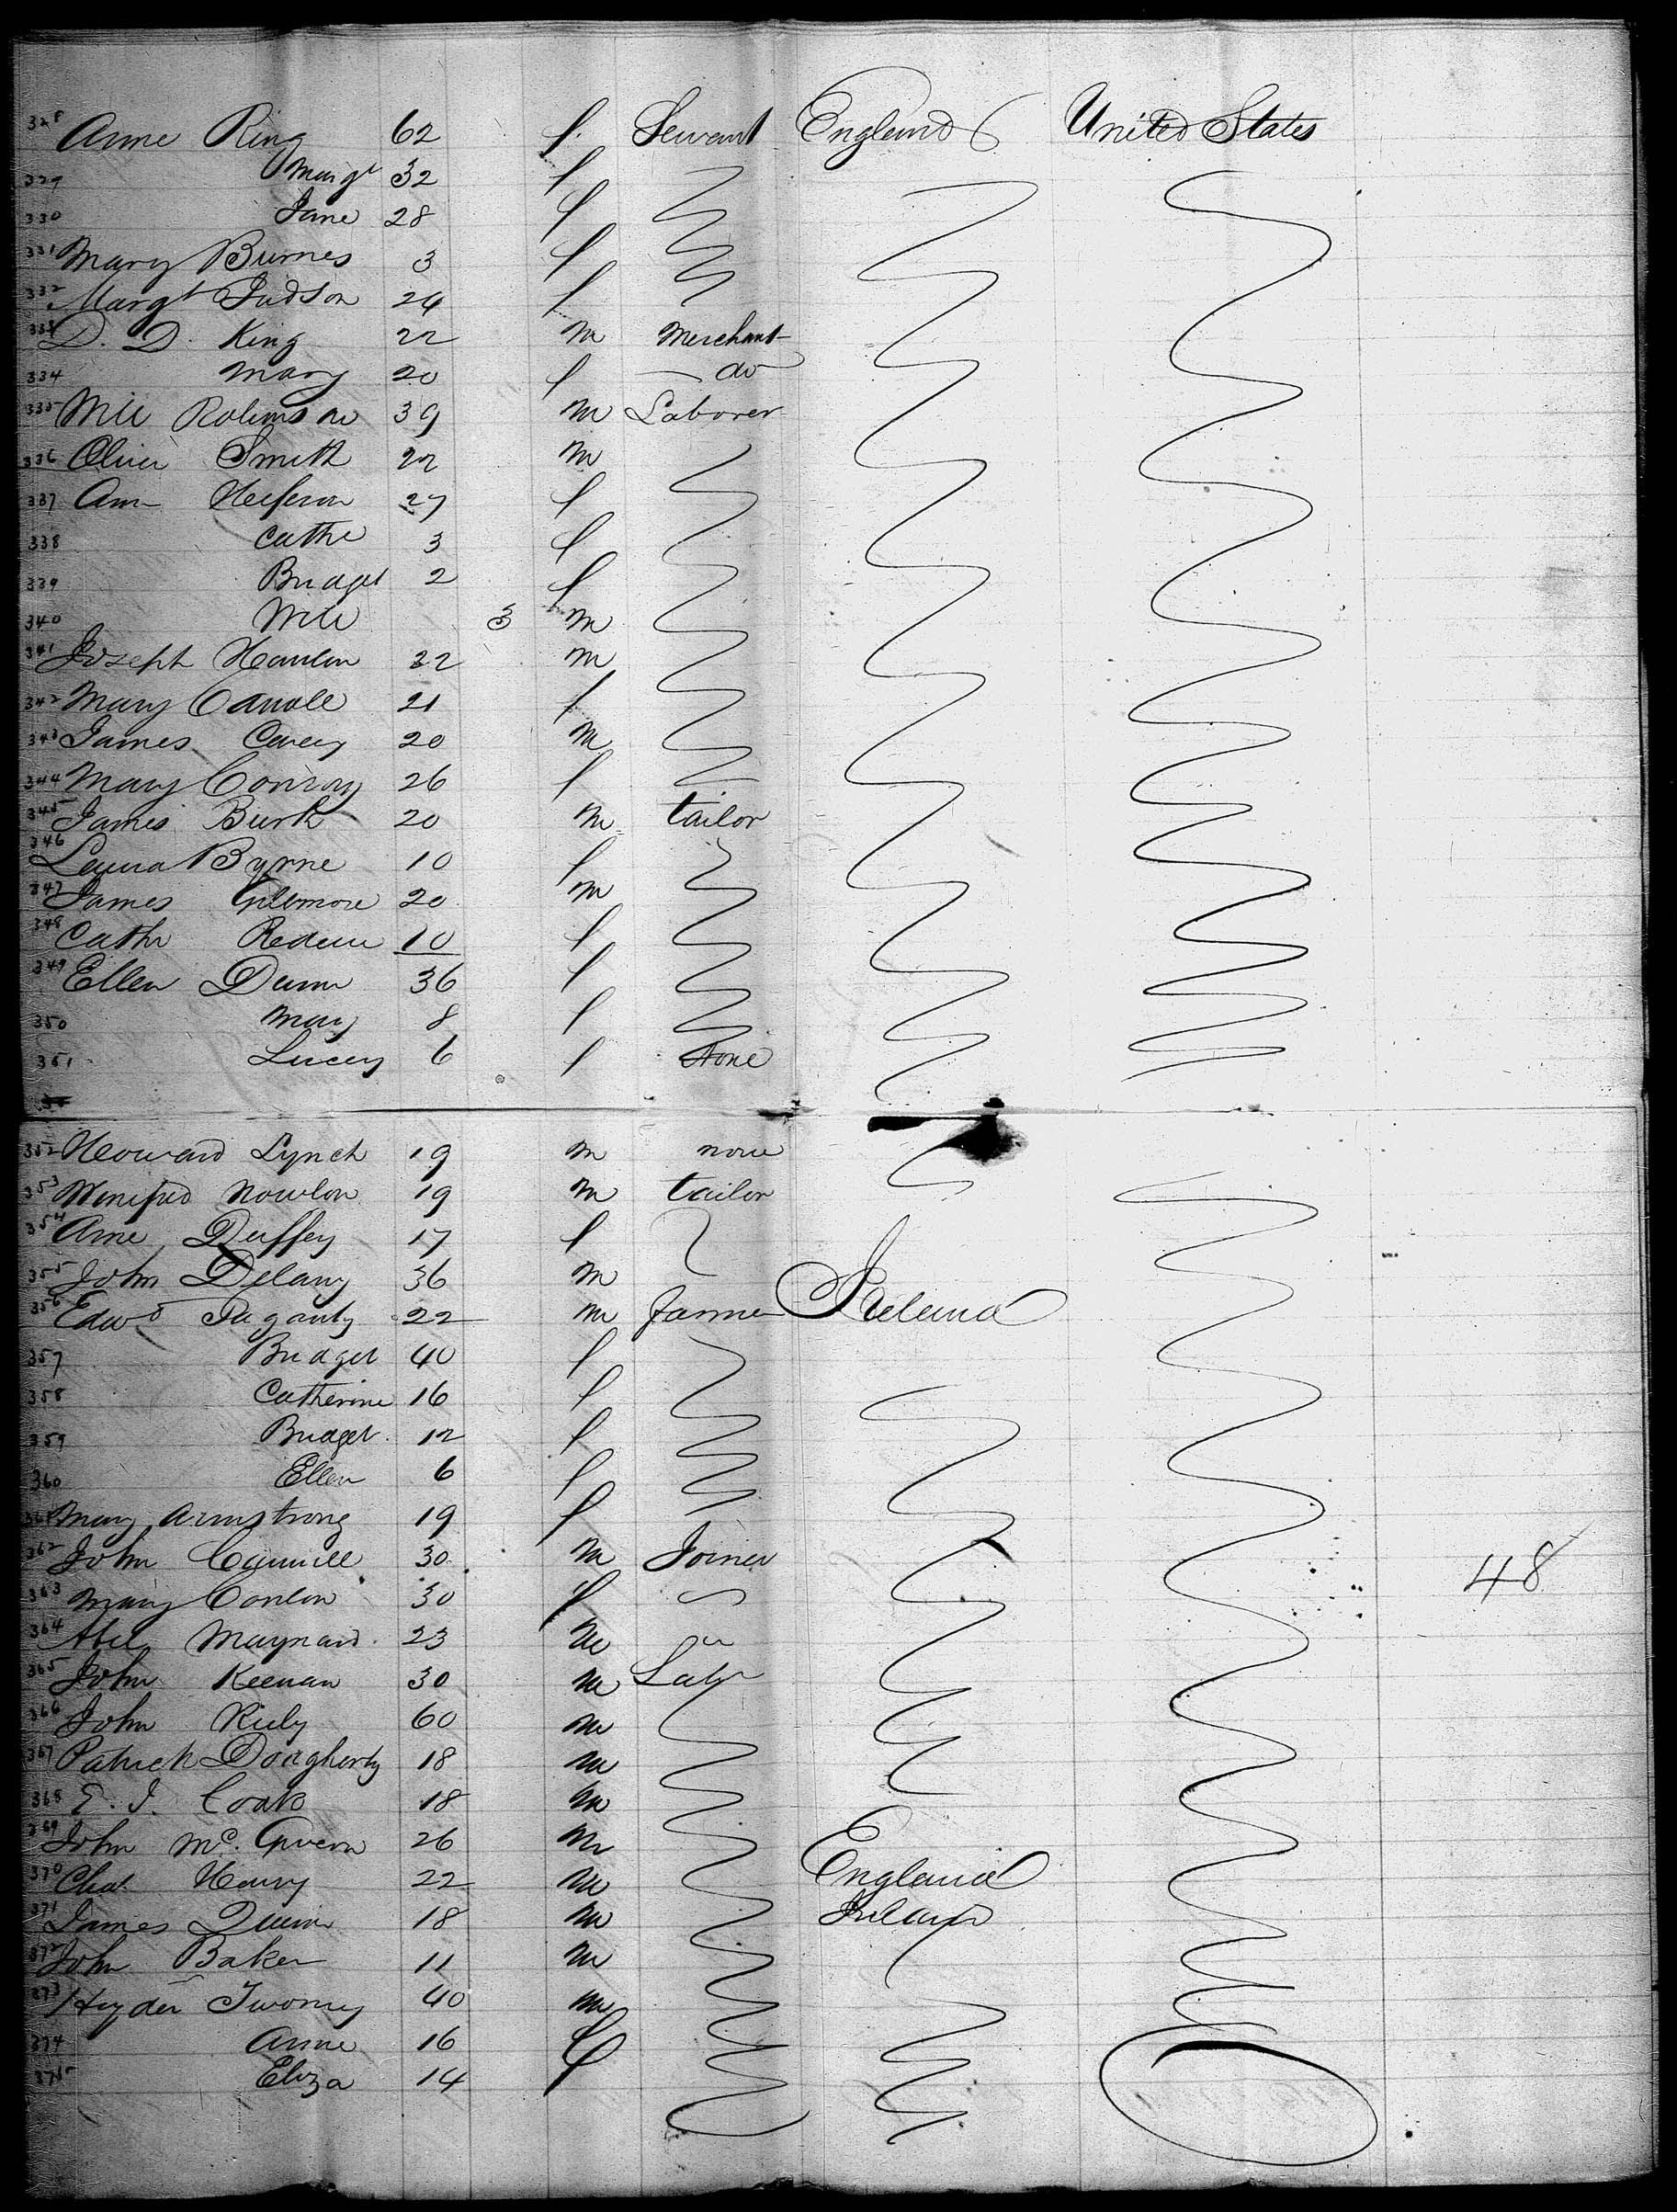 328 Anne Ring 62 f. Servant England United States
329 Margt 32 f
330 Jane 28 f
331 Mary Burnes 3 f
332 Margt Judson 24 f
333 D. D. King 22 m Merchant
334 Mary 20 f do
335 Wm Robinson 39 m Laborer
336 Oliver Smith 22 m
337 Ann Heiferon 27 f
338 Cathe 3 f
339 Bridget 2 f
340 Wm 3 m
341 Joseph Hanlon 22 m
342 Mary Carroll 21 f
343 James Carey 20 m
344 Mary Conroy 26 f
345 James Burk 20 m tailor
346 Laura Byrne 10 f
347 James Gillmore 20 m
348 Cathr 10 f
349 Ellen Dunn 36 f
350 Mary 8 f
351 Lucey 6 f None
352 Howard Lynch 19 m none
353 Winifred Nowlon 19 m tailor
354 Anne Duffey 17 f
355 John Delany 36 m
356 Edwd 22 m farmer Ireland
357 Bridget 40 f
358 Catherine 16 f
359 Bridget 12 f
360 Ellen 6 f
361 Mary Armstrong 19 f
362 John 30 m Joiner
48
363 Mary Conlon 30 f
364 Abel Maynard 23 m
365 John Keenan 30 m Labr
366 John Riely 60 m
367 Patrick Dougherty 18 m
368 E. J. Coats 18 m
369 John Mc. Guvern 26 m
370 Chas Henry 22 m England
371 James Quinn 18 m Ireland
372 John Baker 11 m
373 Hyder Twomey 40 m
374 Anne 16 f
375 Eliza 14 f